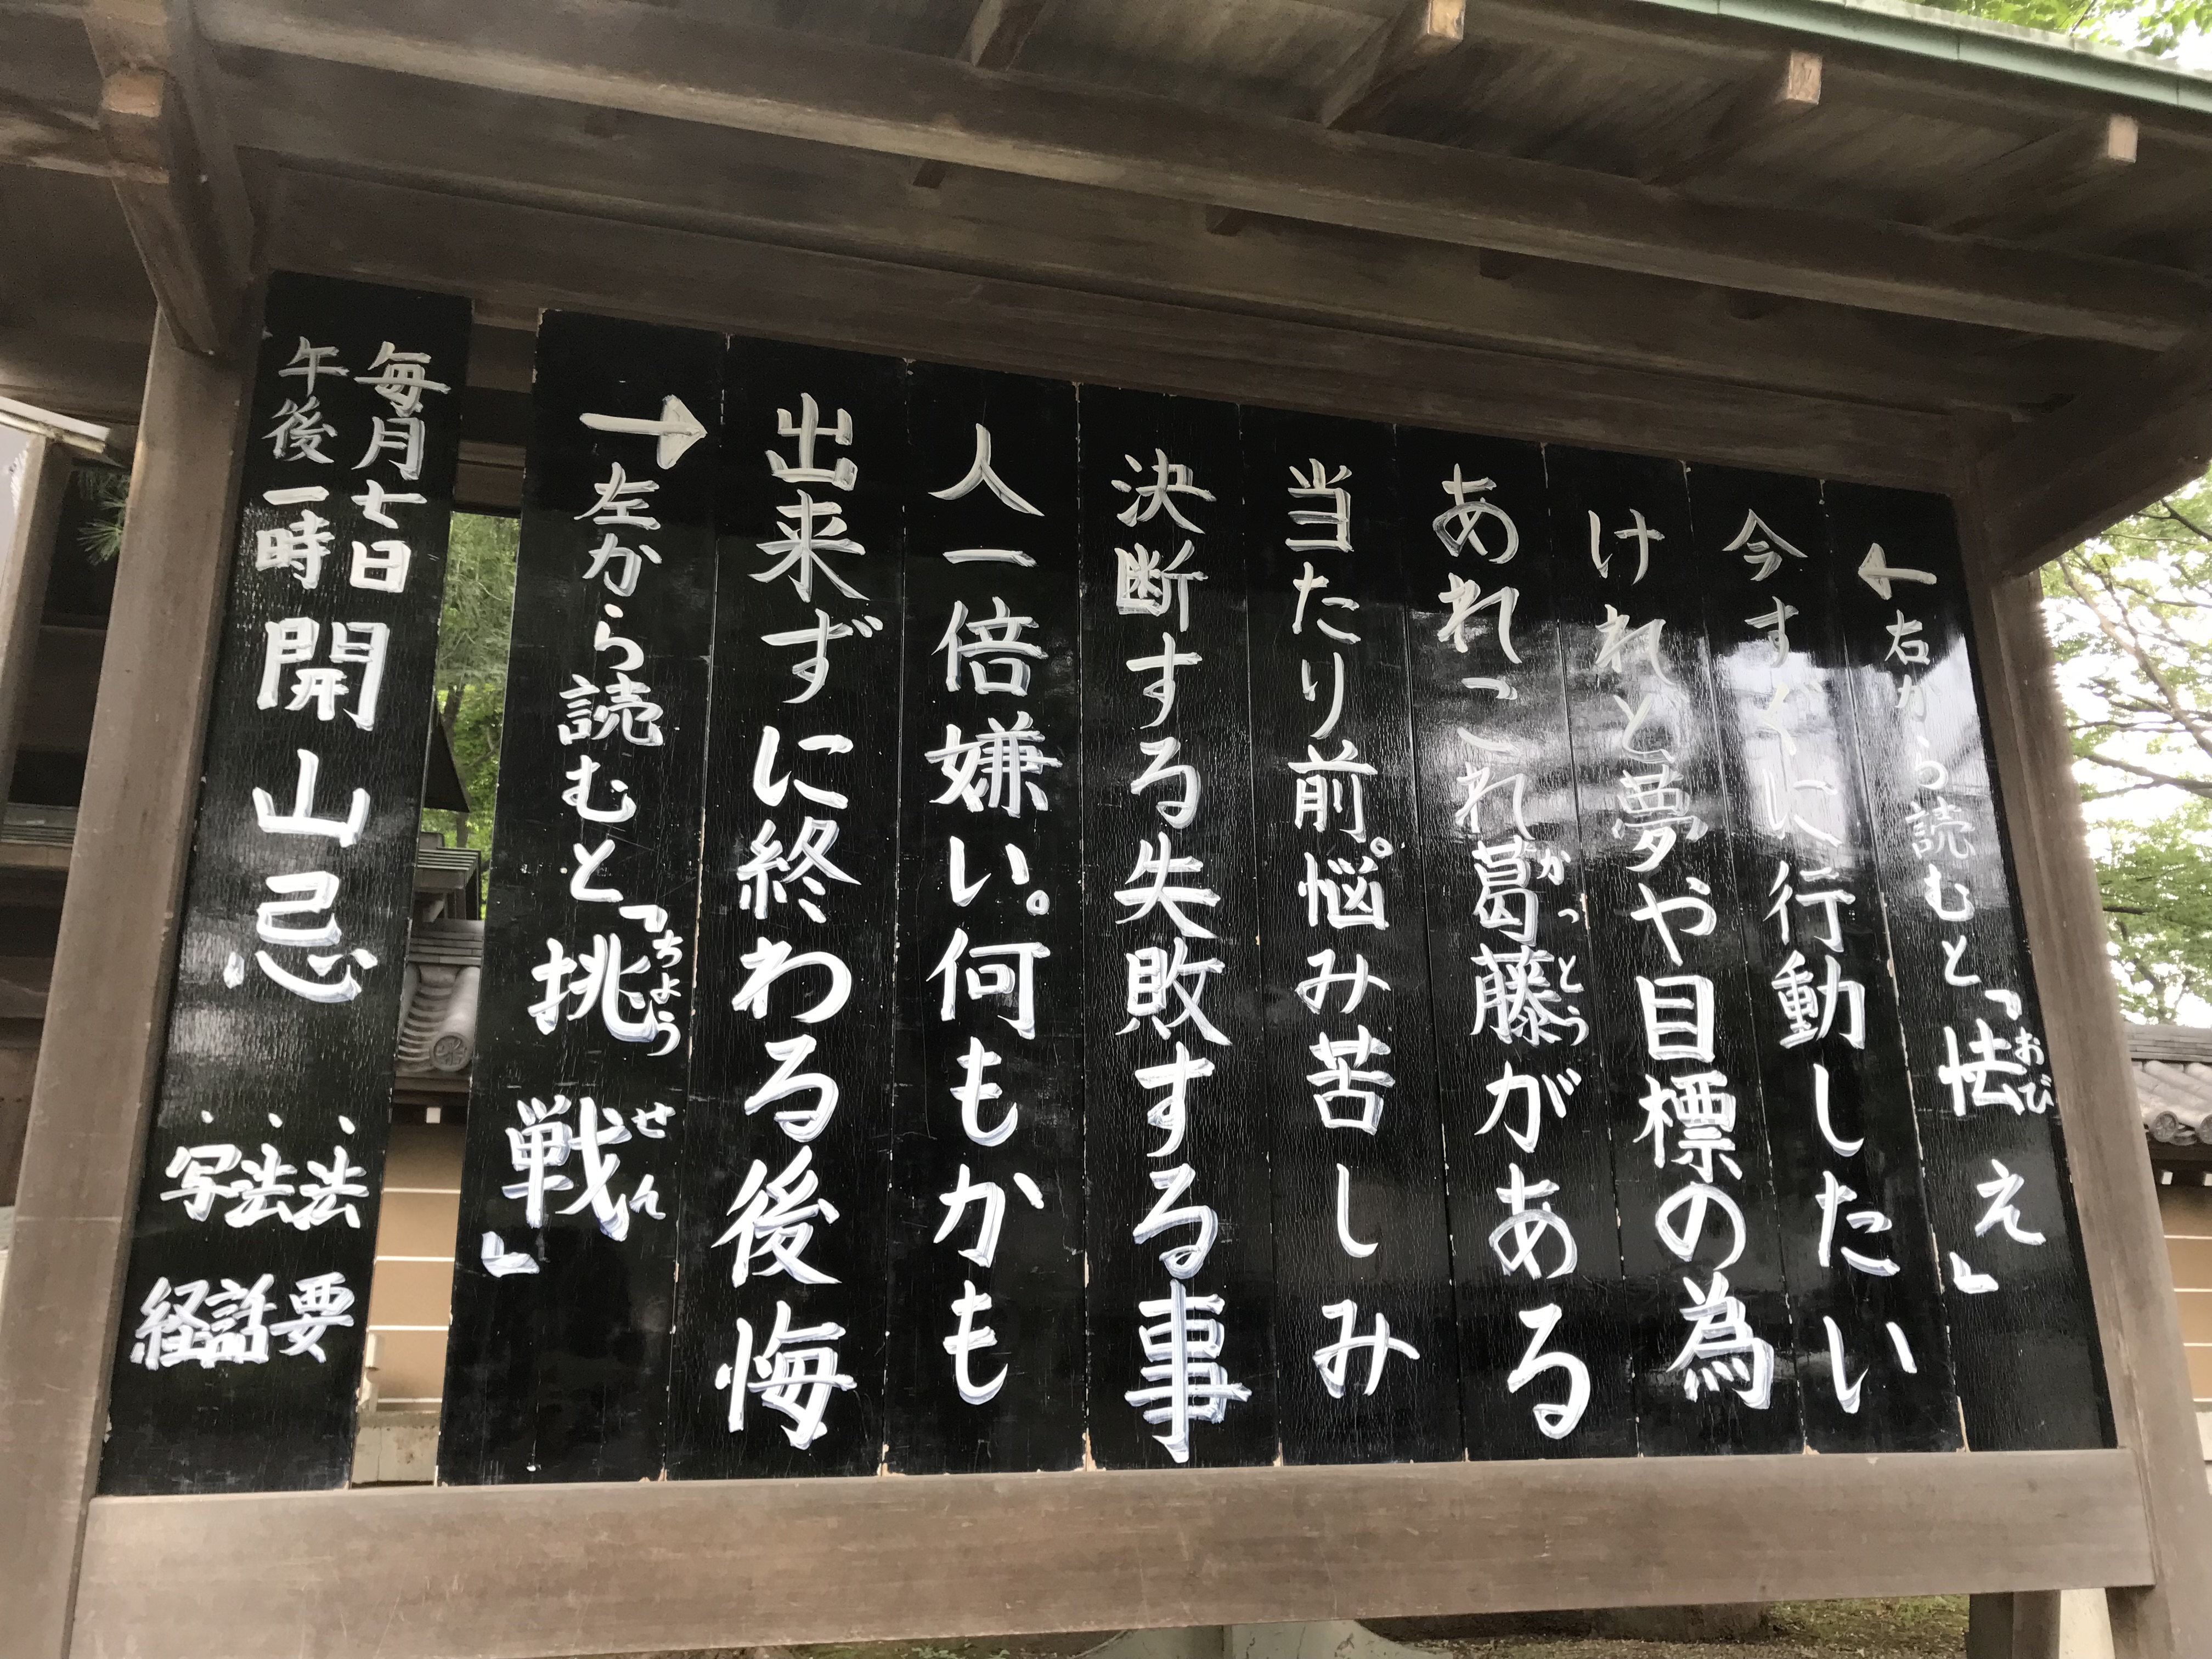 ←右から読むと『怯え』
おび
今すぐに行動したい
けれど夢や目標の為
あれこれ葛藤がある
かっとう
当たり前。悩み苦しみ
決断する失敗する事
人一倍嫌い。何もかも
出来ずに終わる後悔
→左から読むと『挑戦』
ちょうせん
毎月七日
午後一時
開山忌
・法要
・法話
・写経